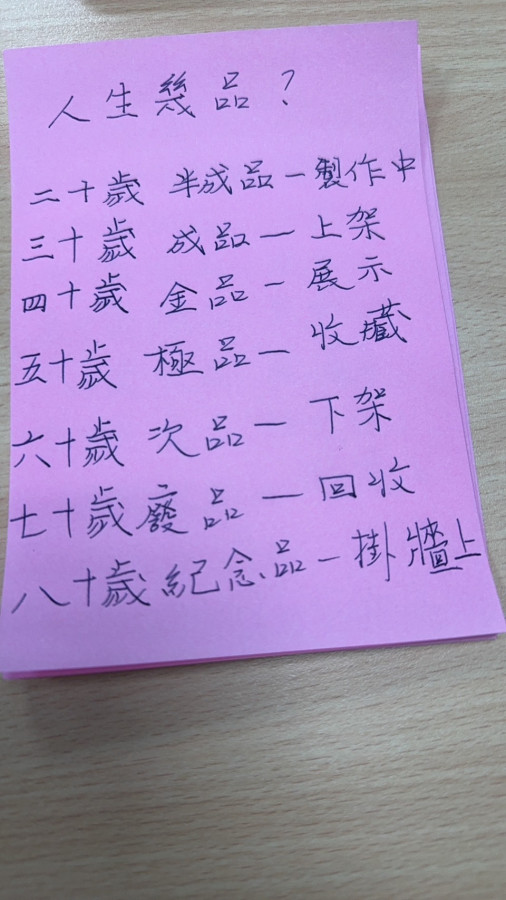 人生幾品?
二十歲 半成品一製作中
三十歲 成品一上架
四十歲 金品一展示
五十歲 極品一收藏
六十歲 次品一下架
七十歲廢品一回收
八十歲紀念品一掛牆上